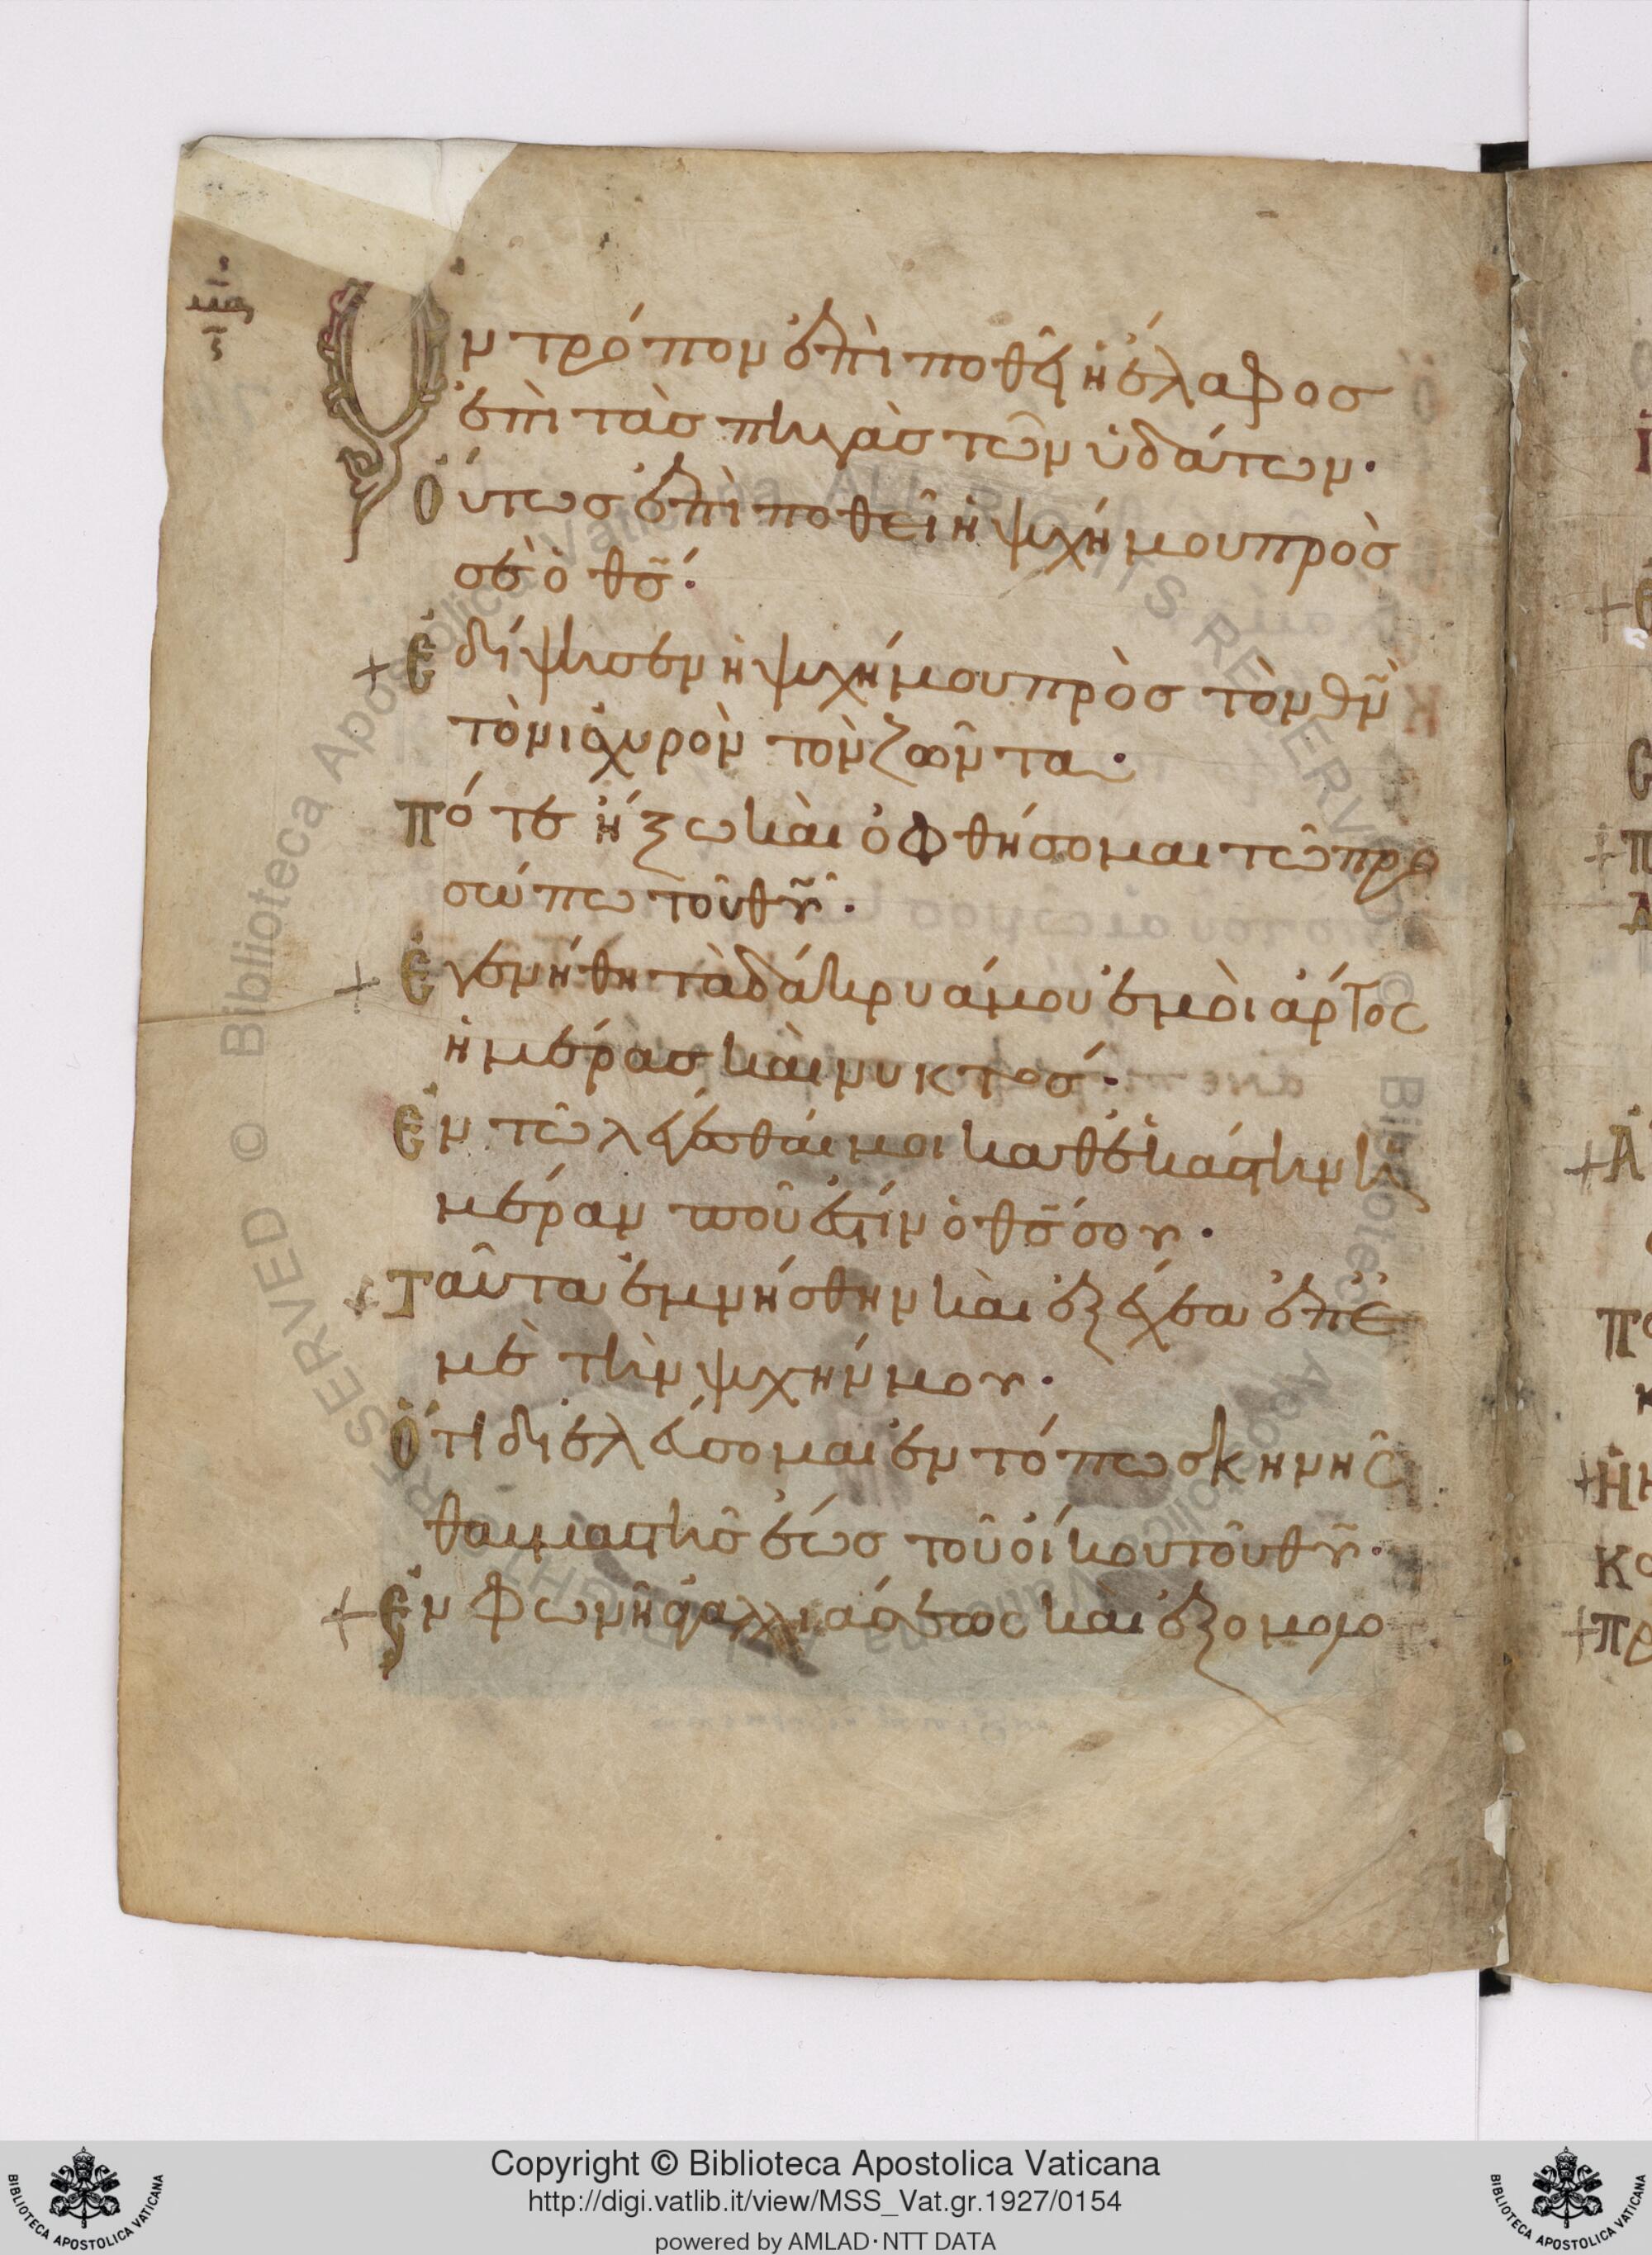 μα
Ὃν τρόπον ἐπιποθεῖ ἡ ἔλαφοσ
ἐπὶ τὰσ πηγὰσ τῶν ὑδάτων·
Ὅυτωσ ἐπιποθεῖ ἡ ψυχή μου πρὸσ
σὲ ὁ θ̅σ̅·
+ Ἐδίψησεν ἡ ψυχή μου πρὸσ τὸν θ̅ν̅
τὸν ἰσχυρὸν τὸν ζῶντα·
πότε ἥξω καὶ ὀφθήσομαι τῶ προ
σώπω τοῦ θ̅υ̅·
+ Ἐγενήθη τὰ δάκρυά μου ἐμοὶ ἄρτος
ἡμέρασ καὶ νυκτοσ·
Ἐν τῶ λέγεσθάι μοι καθ ἑκάστην ἡ
μέραν ποῦ ἐστίν ὁ θ̅σ̅ σου·
+ Ταῦτα ἐμνήσθην καὶ ἐξέχεα ἐπε
μὲ τὴν ψυχήν μου·
Ὅτι διελεύσομαι ἐν τόπω σκηνῆς
θαυμαστῆσ ἕωσ τοῦ οἴκου τοῦ θ̅υ̅·
+ Ἐν φωνῆ ἀγαλλιάσεως καὶ ἐξομολο
Copyright © Biblioteca Apostolica Vaticana
http://digi.vatlib.it/view/MSS_Vat.gr.1927/0154
powered by AMLAD·NTT DATA
BIBLIOTECA APOSTOLICA VATICANA
BIBLIOTECA APOSTOLICA VATICANA